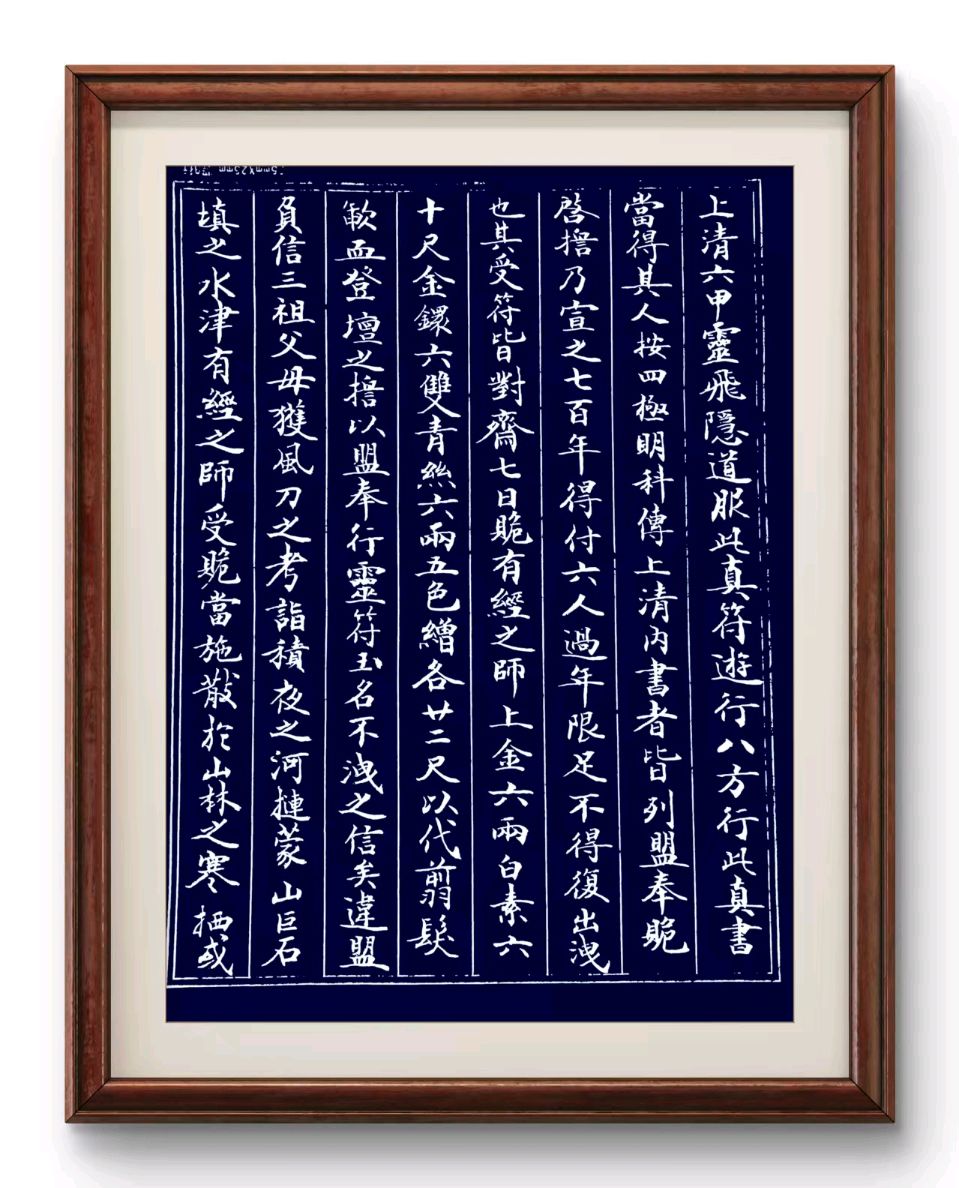 上清六甲靈飛隱道服此真符遊行八方行此真書
當得其人按四極明科傳上清內書者皆列盟奉賘
啓擔乃宣之七百年得付六人過年限足不得復出洩
也其受符皆對齋七日賘有經之師上金六兩白素六
十尺金鐶六雙青絲六兩五色繒各廿二尺以代翦髮
歃血登壇之擔以盟奉行靈符玉名不洩之信矣違盟
負信三祖父母獲風刀之考詣積夜之河摙蒙山巨石
填之水津有經之師受賘當施散於山林之寒栖或